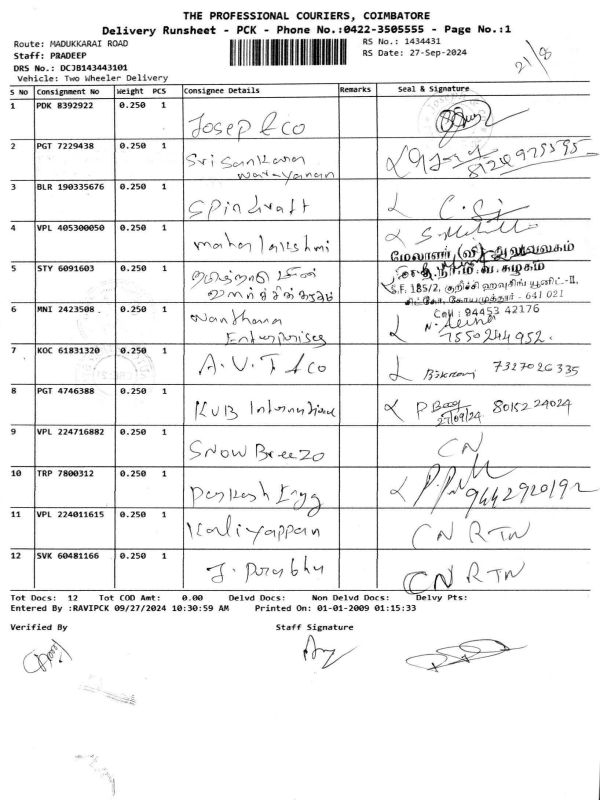 THE PROFESSIONAL COURIERS, COIMBATORE
Delivery Runsheet - PCK - Phone No.:0422-3505555 - Page No.:1
Route: MADUKKARAI ROAD
RS No.: 1434431
Staff: PRADEEP
RS Date: 27-Sep-2024
21/8
DRS No.: DCJB143443101
Vehicle: Two Wheeler Delivery
S No Consignment No Weight PCS Consignee Details Remarks Seal & Signature
1 PDK 8392922 0.250 1 Josep & co
2 PGT 7229438 0.250 1 Sri Sankara
Narayanan
3 BLR 190335676 0.250 1 Spindraft
4 VPL 405300050 0.250 1 mahalakshmi
மேலாளர் (வி) அலுவலகம்
5 STY 6091603 0.250 1
S.F. 185/2, குறிச்சி ஹவுசிங் யூனிட்-II,
சிட்கோ, கோயமுத்தூர் - 641 021
Cell : 94453 42176
6 MNI 2423508 0.250 1 Nanthana
Enterprises
7550244952.
7 KOC 61831320 0.250 1 A.V.T & co 7327026335
8 PGT 4746388 0.250 1 KUB International 8015224024
27/09/24
9 VPL 224716882 0.250 1 Snow Breezo CN
10 TRP 7800312 0.250 1 9442920192
11 VPL 224011615 0.250 1 Kaliyappan CN RTN
12 SVK 60481166 0.250 1 J. Prabhu CN RTN
Tot Docs: 12 Tot COD Amt: 0.00 Delvd Docs: Non Delvd Docs: Delvy Pts:
Entered By :RAVIPCK 09/27/2024 10:30:59 AM Printed On: 01-01-2009 01:15:33
Verified By Staff Signature